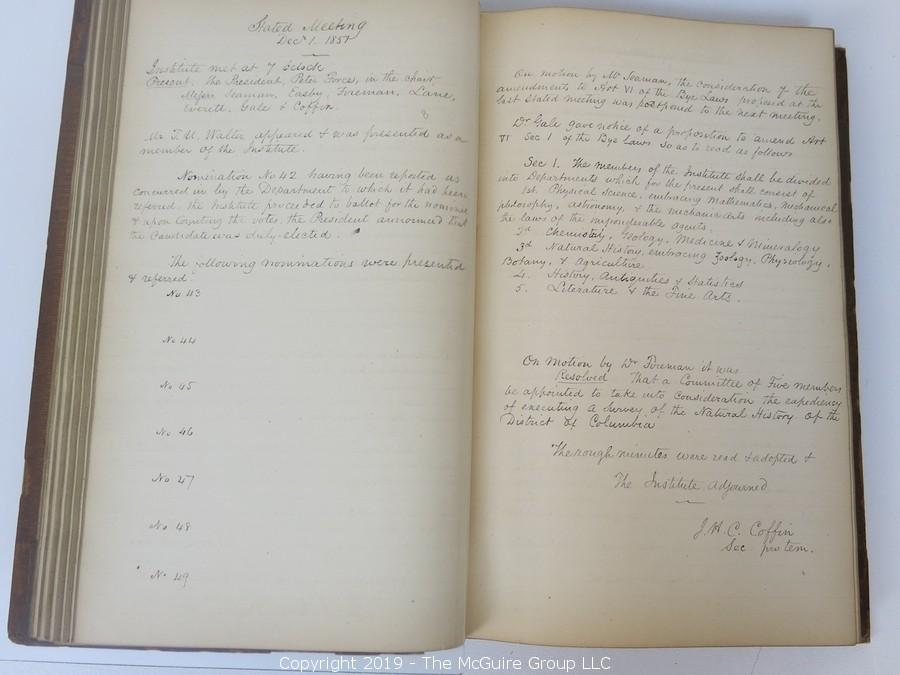 Stated Meeting
Decr 1. 1851
Institute met at 7 oclock
Present. The President, Peter Force, in the chair
Messrs Seaman, Easby, Foreman, Lane,
Everett, Gale & Coffin.
8
Mr T. U. Walter appeared & was presented as a
member of the Institute.
Nomination No 42 having been reported as
concurred in by the Department to which it had been
referred, the Institute proceeded to ballot for the nominee
& upon counting the votes, the President announced that
the Candidate was duly elected.
The following nominations were presented
& referred.
No 43
No 44
No 45
No 46
No 47
No 48
No 49
On motion by Mr Seaman, the consideration of the
amendments to Art VI of the Bye Laws proposed at the
last Stated meeting was postponed to the next meeting.
Dr Gale gave notice of a proposition to amend Art
VI Sec 1 of the Bye Laws so as to read as follows
Sec 1. The members of the Institute shall be divided
into Departments which for the present shall consist of
1st. Physical science, embracing Mathematics, Mechanical
philosophy, astronomy, & the mechanic arts including also
the laws of the imponderable agents.
2d Chemistry, Geology, Medicine & Mineralogy
3d Natural History, embracing Zoology, Physiology,
Botany, & Agriculture
4. History, Antiquities & Statistics
5. Literature & the Fine Arts.
On motion by Dr Foreman it was
Resolved That a Committee of Five members
be appointed to take into consideration the expediency
of executing a Survey of the Natural History of the
District of Columbia
The rough minutes were read & adopted &
The Institute adjourned
J. H. C. Coffin
Sec pro tem.
Copyright 2019 - The McGuire Group LLC